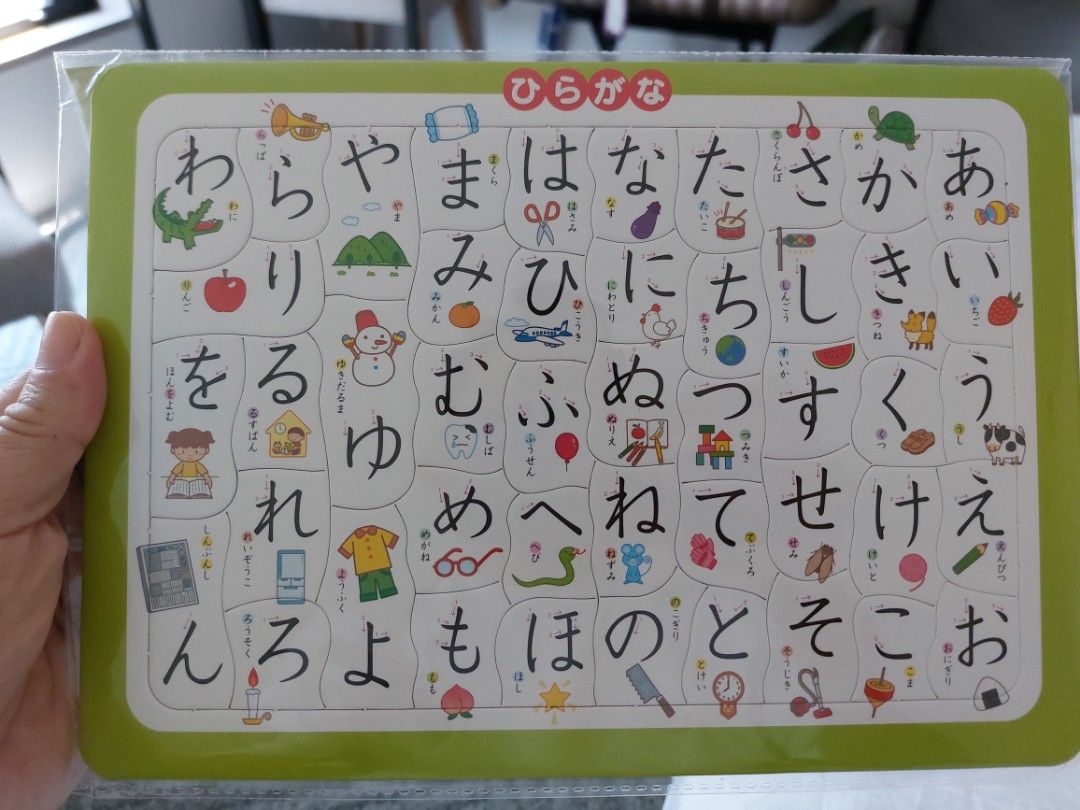 ひらがな
あ
あめ
い
いちご
う
うし
え
えんぴつ
お
おにぎり
か
かめ
き
きつね
く
くつ
け
けいと
こ
こま
さ
さくらんぼ
し
しんごう
す
すいか
せ
せみ
そ
そうじき
た
たいこ
ち
ちきゅう
つ
つみき
て
てぶくろ
と
とけい
な
なす
に
にわとり
ぬ
ぬりえ
ね
ねずみ
の
のこぎり
は
はさみ
ひ
ひこうき
ふ
ふうせん
へ
へび
ほ
ほし
ま
まくら
み
みかん
む
むしば
め
めがね
も
もも
や
やま
ゆ
ゆきだるま
よ
ようふく
ら
らっぱ
り
りんご
る
るすばん
れ
れいぞうこ
ろ
ろうそく
わ
わに
を
ほんをよむ
ん
しんぶんし